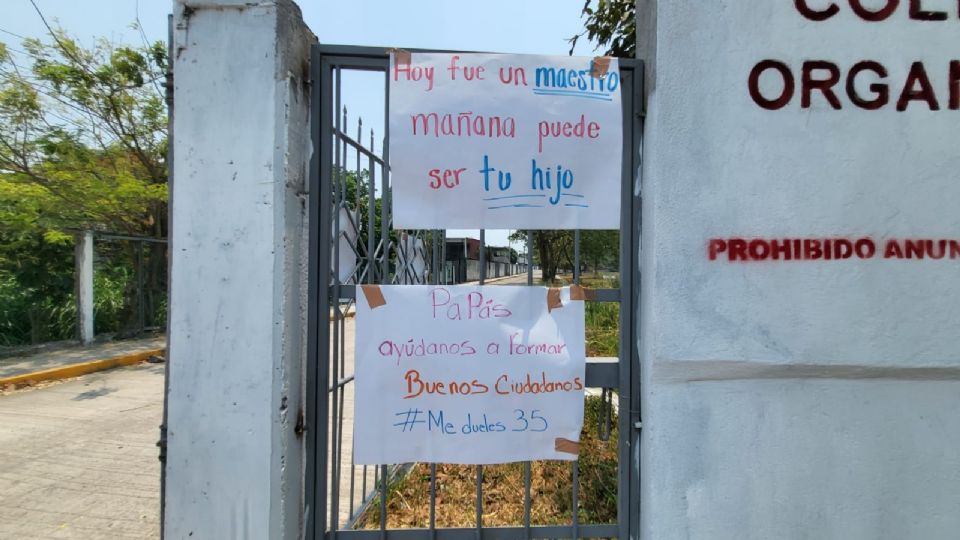 Hoy fue un maestro
mañana puede
ser tu hijo
PaPás
ayúdanos a Formar
Buenos Ciudadanos
#Me dueles 35
ORGAN
PROHIBIDO ANUN